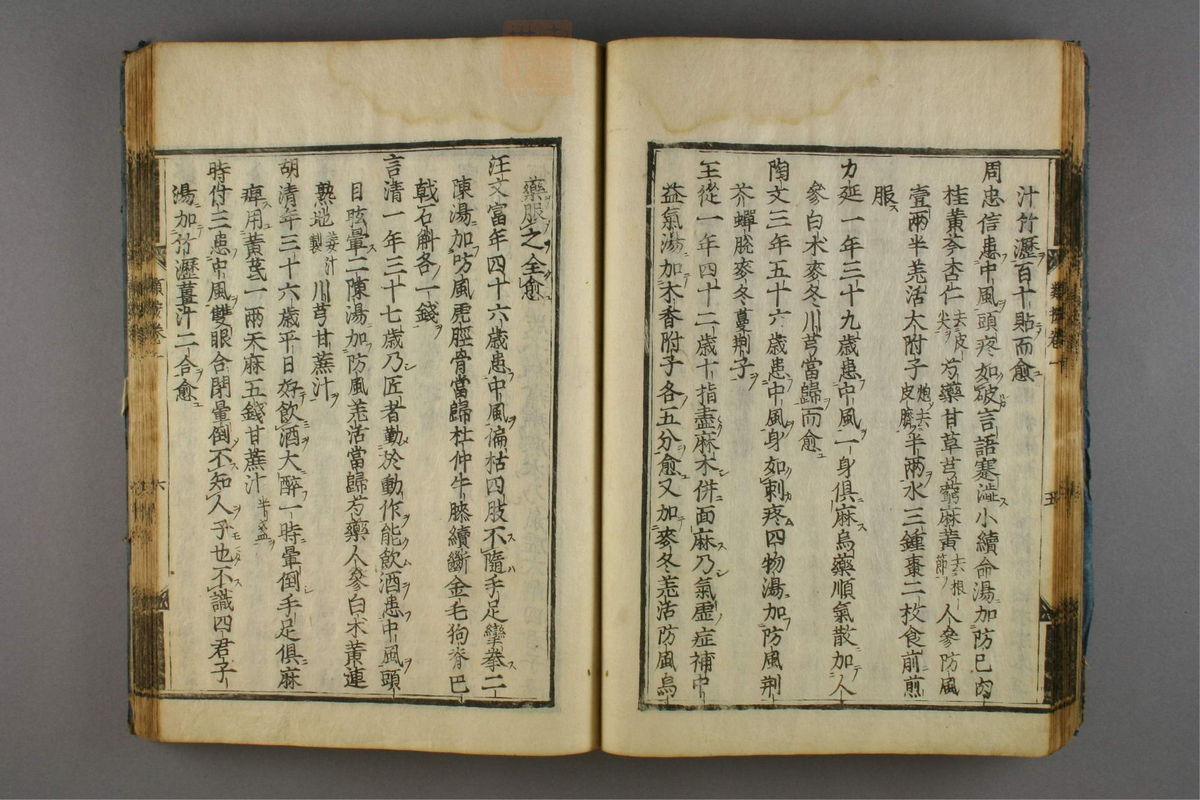 汁竹瀝百十貼而愈
周忠信患中風頭疼如破言語蹇澁小續命湯加防已肉
桂黃芩杏仁去皮尖芍藥甘草芎藭麻黃去根節人參防風
壹兩半羌活大附子炮去皮臍半兩水三鍾棗二枚食前煎
服
力延一年三十九歲患中風一身俱麻烏藥順氣散加人
參白朮麥冬川芎當歸而愈
陶文三年五十六歲患中風身如刺疼四物湯加防風荆
芥蟬脫麥冬蔓荆子
王從一年四十二歲十指盡麻木併面麻乃氣虛症補中
益氣湯加木香附子各五分愈又加麥冬羌活防風烏
藥服之全愈
汪文富年四十六歲患中風偏枯四肢不隨手足攣拳二
陳湯加防風虎脛骨當歸杜仲牛膝續斷金毛狗脊巴
戟石斛各一錢
言清一年三十七歲乃匠者勤於動作能飲酒患中風頭
目眩暈二陳湯加防風羌活當歸芍藥人參白朮黃連
熟地姜汁製川芎甘蔗汁
胡清年三十六歲平日好飲酒大醉一時暈倒手足俱麻
痺用黃芪一兩天麻五錢甘蔗汁半盞
時付三患中風雙眼合閉暈倒不知人子也不識四君子
湯加竹瀝薑汁二合愈
類方卷一
五
六